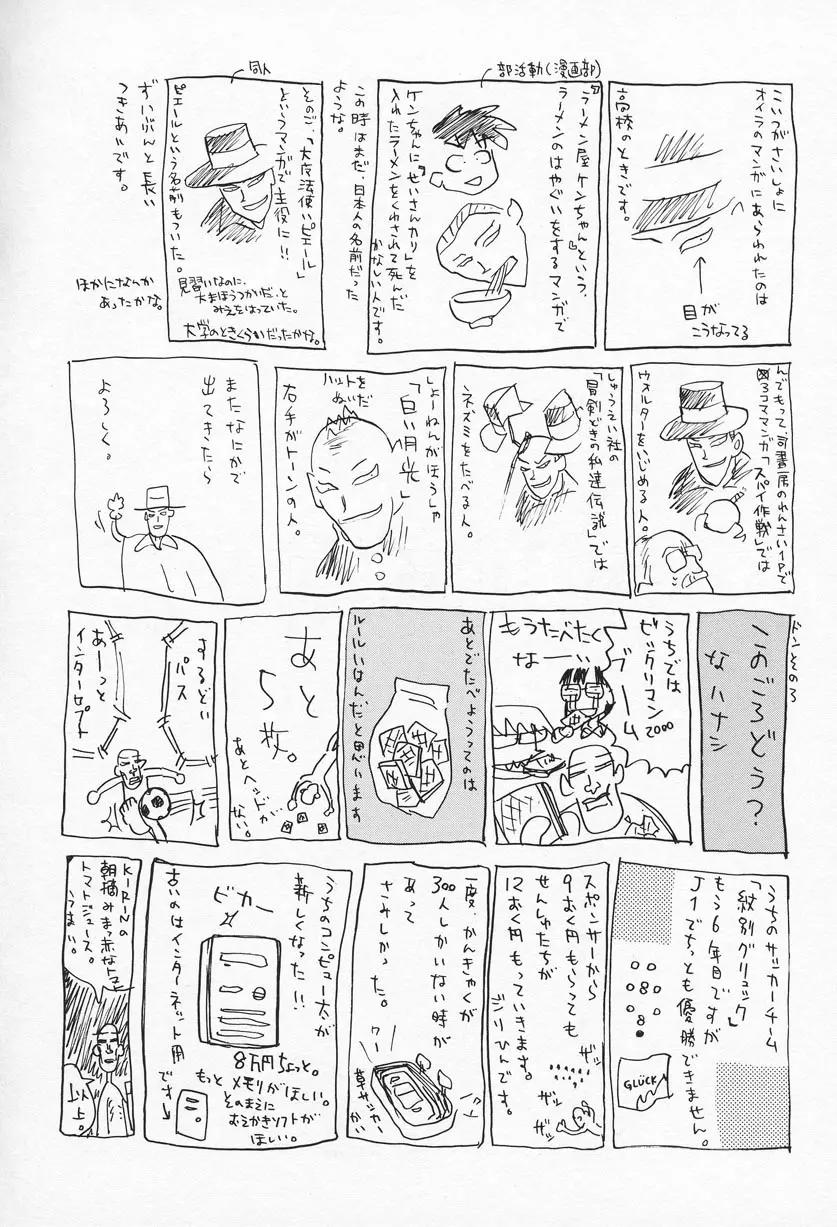 こいつがさいしょに
オイラのマンガにあらわれたのは
高校のときです。
目が
こうなってる
部活動(漫画部)
「ラーメン屋ケンちゃん」という、
ラーメンのはやぐいをするマンガで
ケンちゃんに「せいさんカリ」を
入れたラーメンをくわされて死んだ
かなしい人です。
この時はまだ、日本人の名前だった
ような。
同人
そのご、「大魔法使いピエール」
というマンガで主役に!!
ピエールという名前もついた。
見習いなのに、
大まほうつかいだ、と
みえをはっていた。
大学のときくらいだったかな。
ずいぶんと長い
つきあいです。
ほかになんか
あったかな。
んでもって、司書房のれんさい1Pで
3コママンガ「スパイ作戦」では
ウォルターをいじめる人。
しゅうえい社の
「冒剣どきの私達伝説」では
ネズミをたべる人。
しょーねんがほうしゃ
「白い月光」
ハットを
ぬいだ
右手がトーンの人。
またなにかで
出てきたら
よろしく。
ドンその3
このごろどう?
なハナシ
うちでは
ビックリマン
2000
ブーム
もうたべたく
なーい
あとでたべようってのは
ルールいはんだと思います
あと
5枚。
あとヘッドが
ない。
するどい
パス
あーっと
インターセプト
うちのサッカーチーム
「紋別グリュック」
もう6年目ですが
J1でちっとも優勝できません。
GLÜCK
スポンサーから
9おく円もらっても
せんしゅたちが
12おく円もっていきます。
ザッ
ザッ
ザッ
一度、かんきゃくが
300人しかいない時が
あって
さみしかった。
ワー
草サッカー
かい
うちのコンピュー太が
新しくなった!!
ピカー
8万円ちょっと。
もっとメモリがほしい。
そのまえに
おえかきソフトが
ほしい。
古いのはインターネット用
です→
KIRINの
朝摘みまっ赤なトマト
トマトジュース。
うまい。
以上。